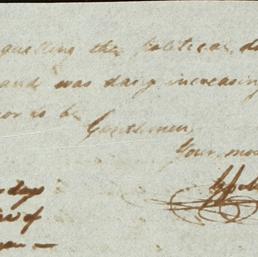 quelling the Political d
and was daily increasing
or to be
Gentlemen
Your mo
days
of